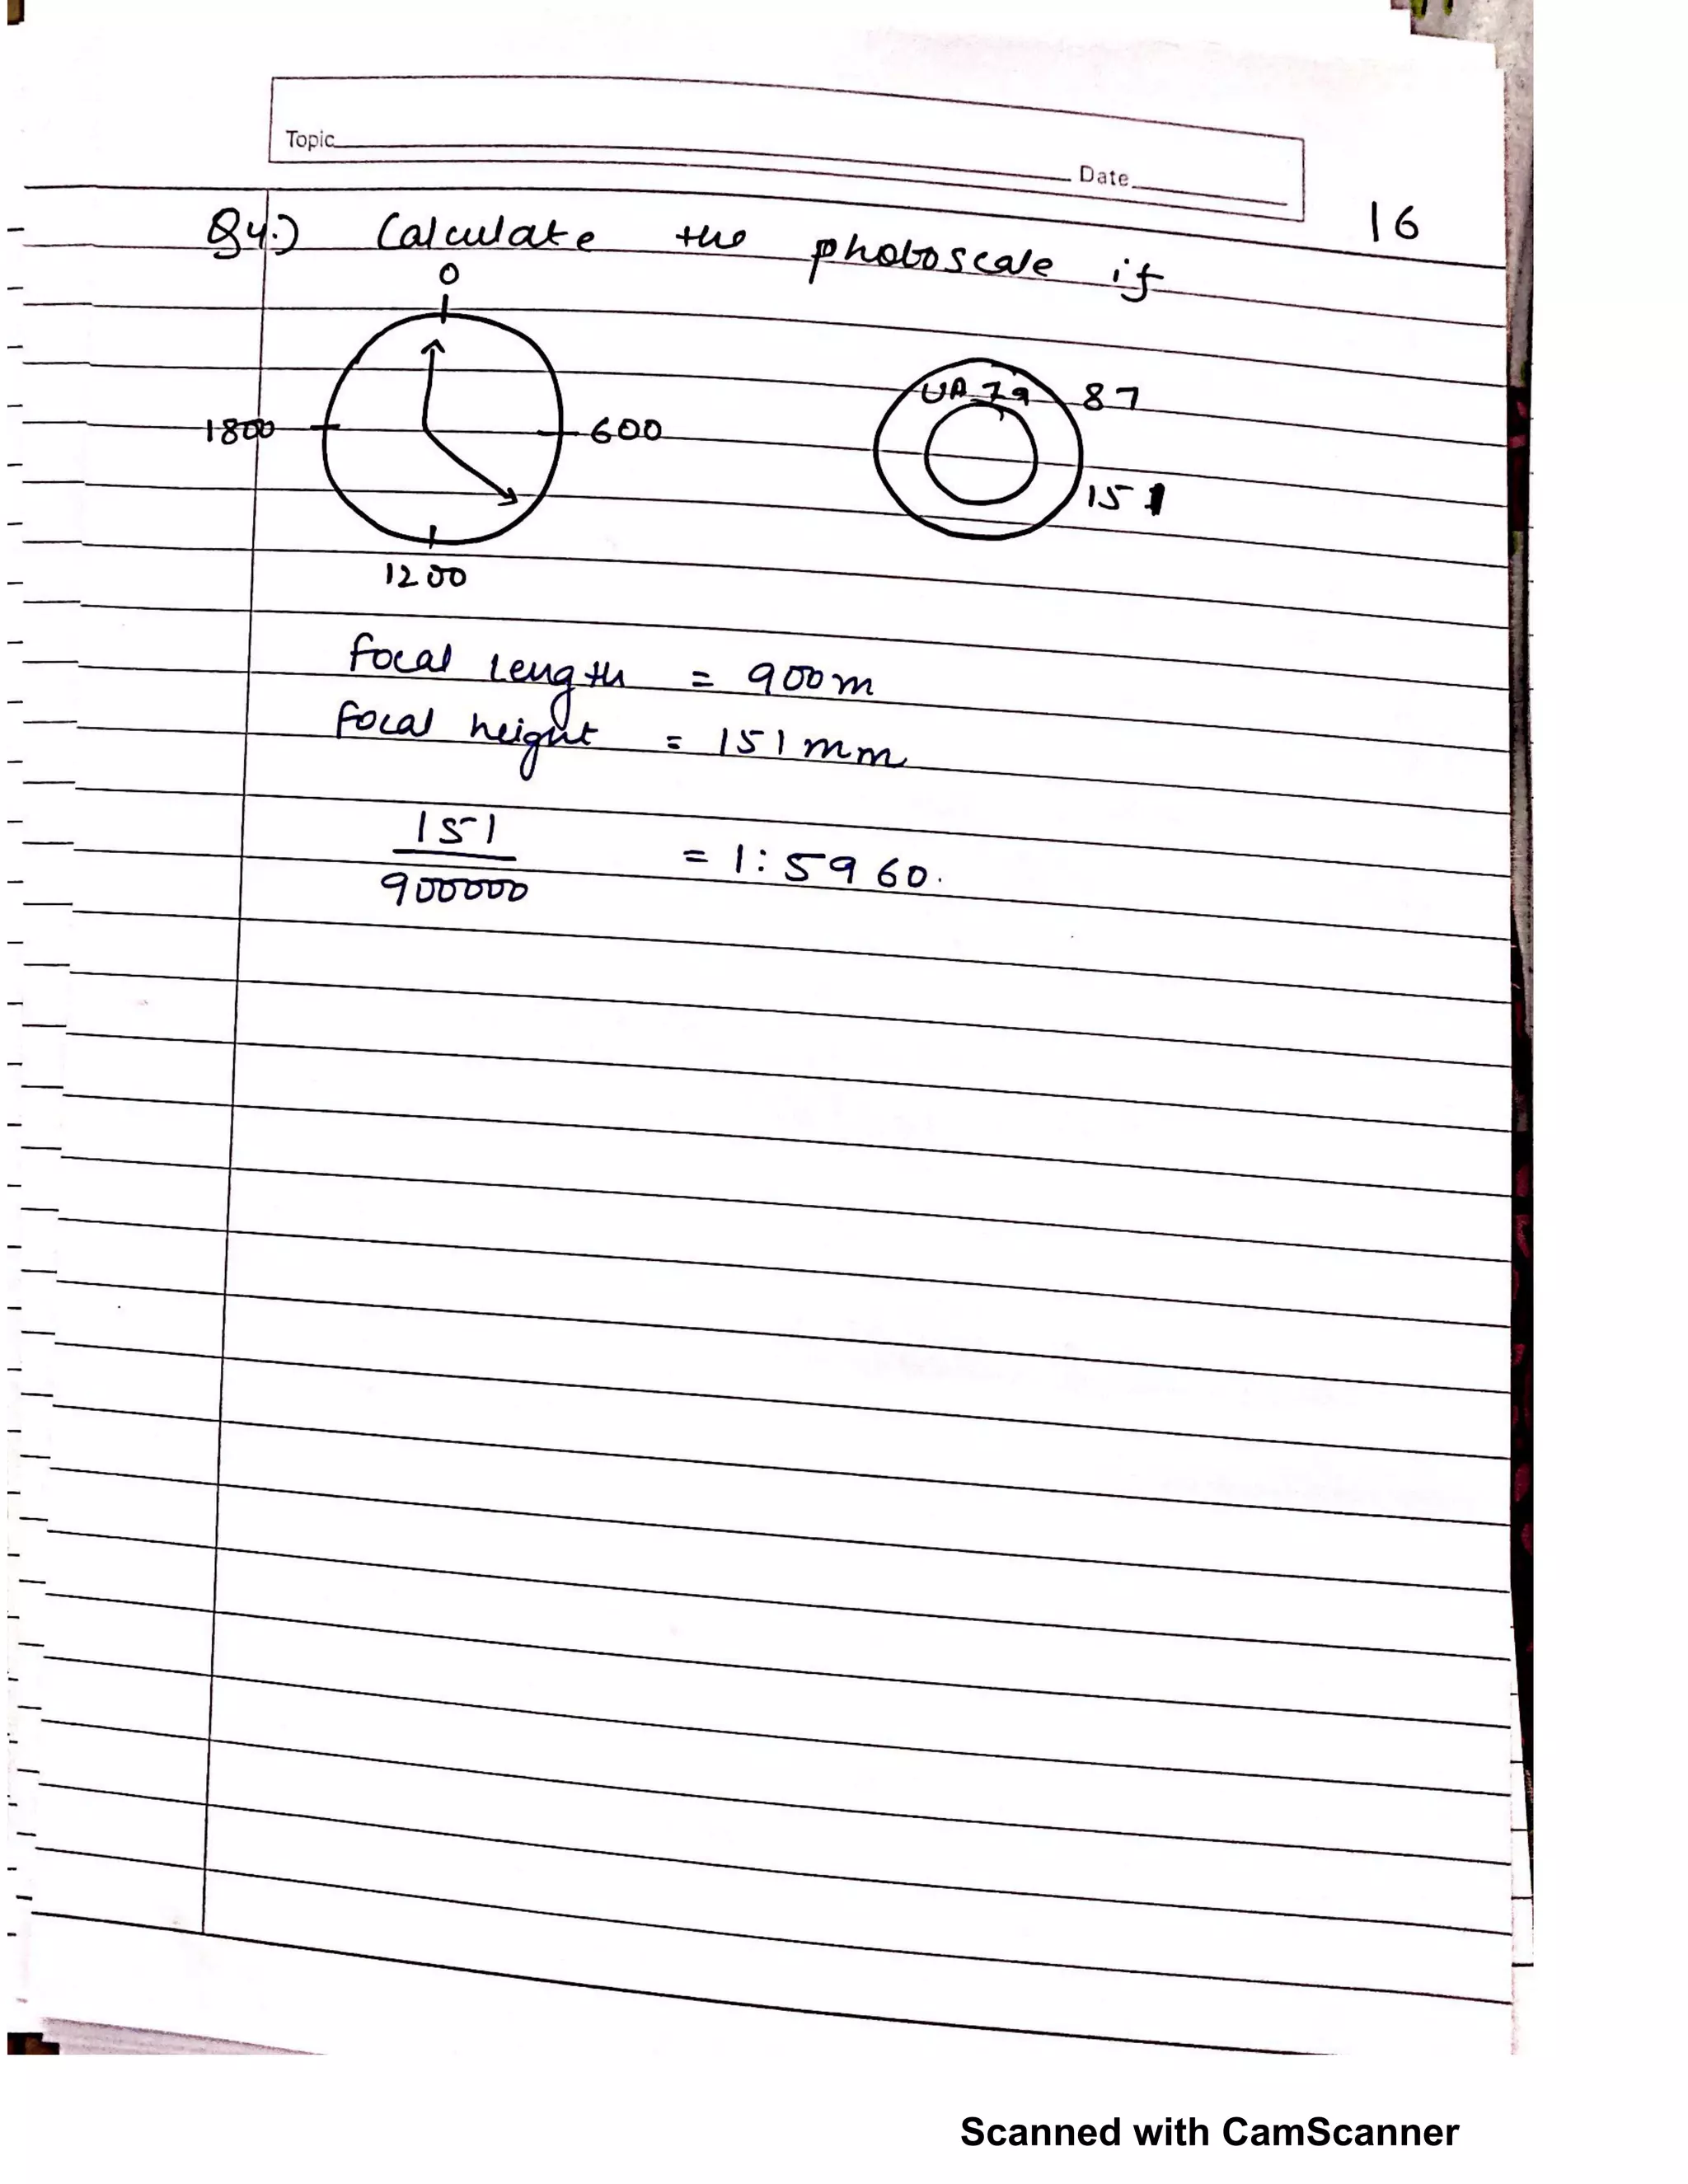 Topic
Date
16
Q4.) Calculate the photoscale if
0
1800
600
1200
UA 79 87
151
Focal length = 900m
Focal height = 151mm
151
900000
= 1:5960.
Scanned with CamScanner